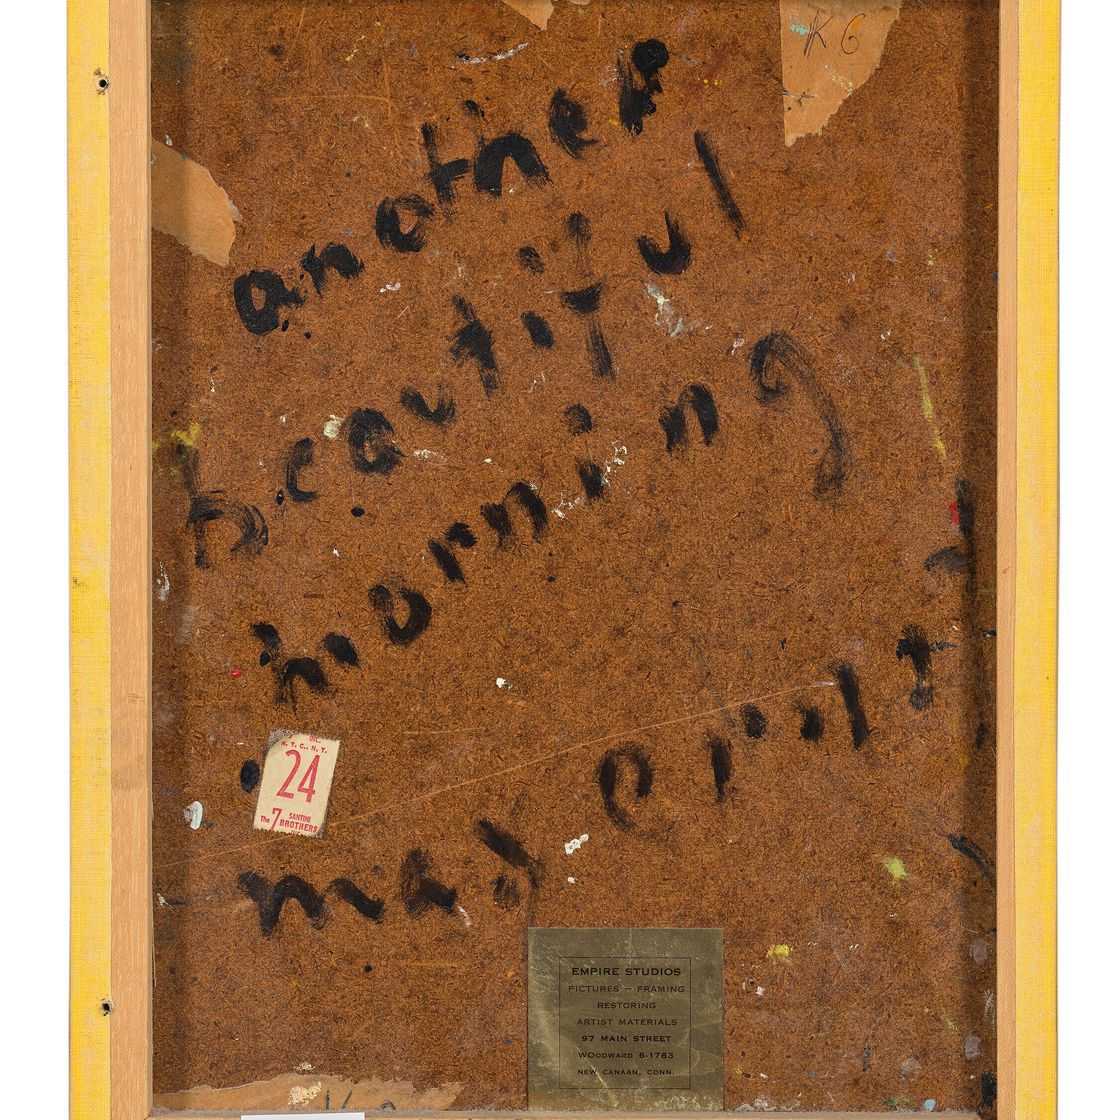 K 6
another
beautiful
morning
may
INC.
N. Y. C., N. Y.
24
The 7 SANTINI
BROTHERS
EMPIRE STUDIOS
PICTURES — FRAMING
RESTORING
ARTIST MATERIALS
97 MAIN STREET
WOODWARD 6-1783
NEW CANAAN, CONN.